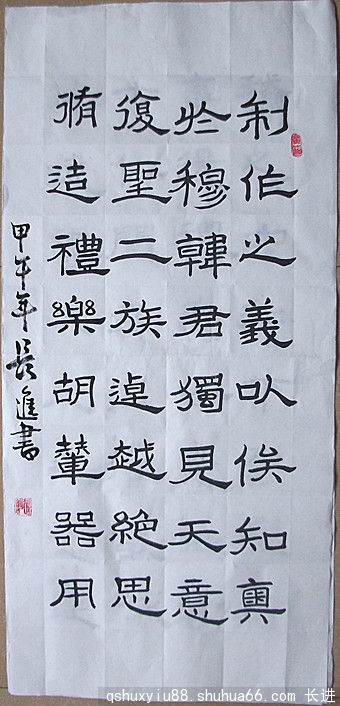 制作之義以俟知奧
於穆韓君獨見天意
復聖二族逴越絕思
脩造禮樂胡輦器用
甲午年長進書
qshuxyiu88.shuhua66.com 长进